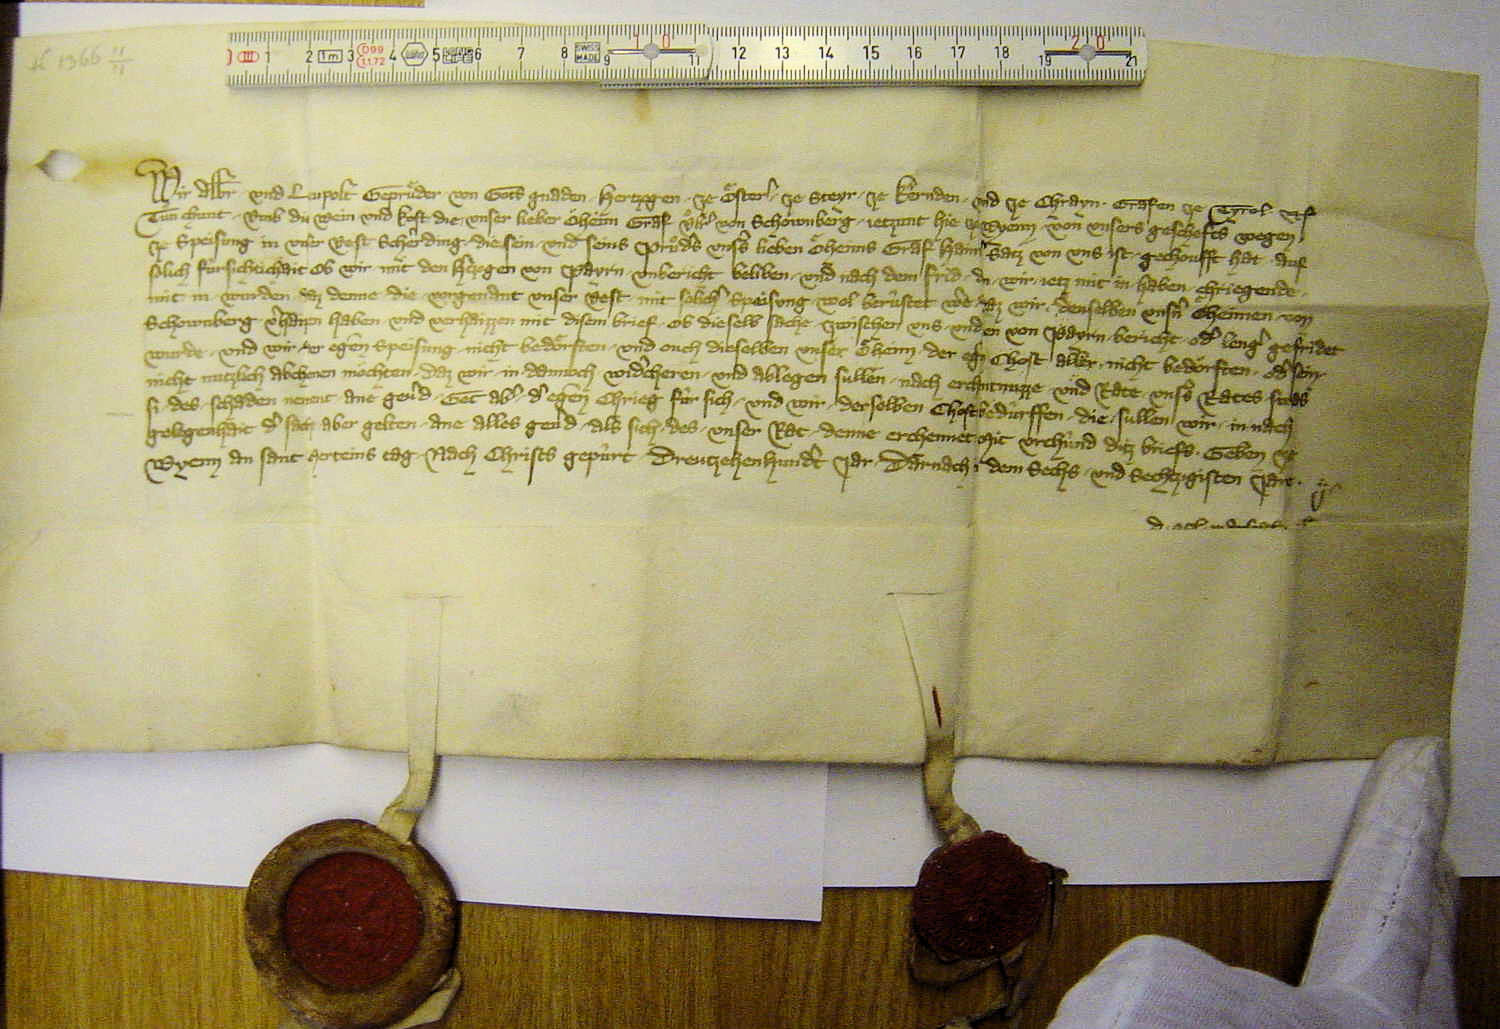 1366 11/11
1 2 1m 3 D99 1.1.72 4 5 LONG LIFE 6 7 8 SWISS MADE 9 10 11 12 13 14 15 16 17 18 19 20 21
Wir Albr und Leupolt Geprüder von Gots gnaden Hertzogen ze Österr ze Steyr ze Kernden und ze Chrayn Grafen ze Tyrol
Tun chunt umb din Wein und kost die unser lieber Öheim Graf von Schownberg ietzunt hie ze Wyenn von unsers gescheffts wegen
ze Speisung in unser Vest Scherding die sein und seins Prüders unsers lieben Öheims Graf Satz von uns ist gechoufft hat auf
sölich fürsichtichait ob wir mit den Hertzogen von Payrn unbericht beliben und nach dem frid den wir ietz mit in haben chriegende
mit in wurden daz denne die vorgenant unser Vest mit sölicher Speisung wol berüstet wer daz wir denselben unsern Öheimen von
Schownberg verhaizzen haben und verhaizzen mit disem brief ob dieselb sache zwischen uns und den von Payrn bericht oder lenger gefridet
wurde und wir der egen Speisung nicht bedörften und ouch dieselben unser Öheim der egen Chost nicht bedörften oder sein
nicht nutzlich abchomen möchten daz wir in dannoch widercheren und ablegen sullen nach erchantnüzze und Rate unsers Rates swas
si des schaden nement ane geverd Get aber der egen Chrieg für sich und wir derselben Chost bedurffen die sullen wir in nach
gelegenhait der sach aber gelten ane alles geverd als sich des unser Rat denne erchennet Mit urchund ditz briefs Geben ze
Wyenn an sant Merteins tag Nach Christs gepürt Dreutzehenhundert Jar Darnach in dem Sechs und Sechtzigisten Jare